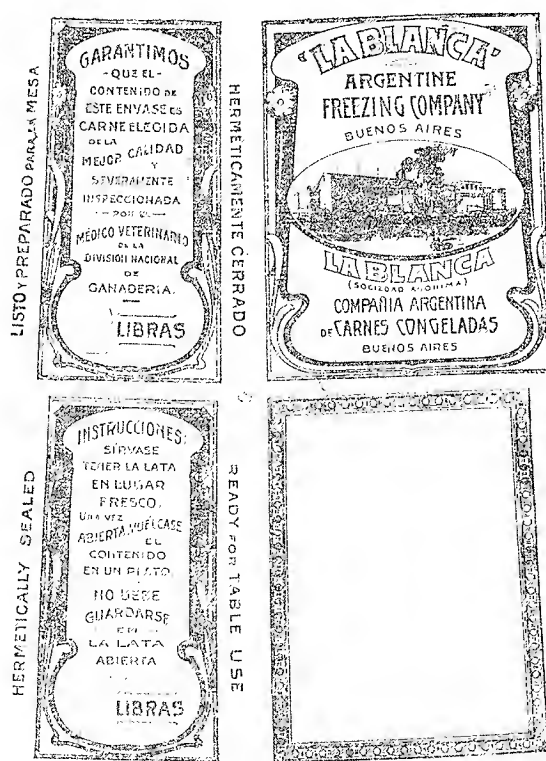 LISTO Y PREPARADO PARA LA MESA
GARANTIMOS
- QUE EL -
CONTENIDO DE
ESTE ENVASE ES
CARNE ELEGIDA
DE LA
MEJOR CALIDAD
Y
SEVERAMENTE
INSPECCIONADA
- POR EL -
MÉDICO VETERINARIO
DE LA
DIVISION NACIONAL
DE
GANADERIA.
LIBRAS
HERMETICAMENTE CERRADO
"LA BLANCA"
ARGENTINE
FREEZING COMPANY
BUENOS AIRES
LA BLANCA
(SOCIEDAD ANONIMA)
COMPAÑIA ARGENTINA
DE CARNES CONGELADAS
BUENOS AIRES
HERMETICALLY SEALED
INSTRUCCIONES:
SÍRVASE
TENER LA LATA
EN LUGAR
FRESCO.
UNA VEZ
ABIERTA, VUÉLCASE
EL
CONTENIDO
EN UN PLATO.
NO DEBE
GUARDARSE
- EN -
LA LATA
ABIERTA
LIBRAS
READY FOR TABLE USE